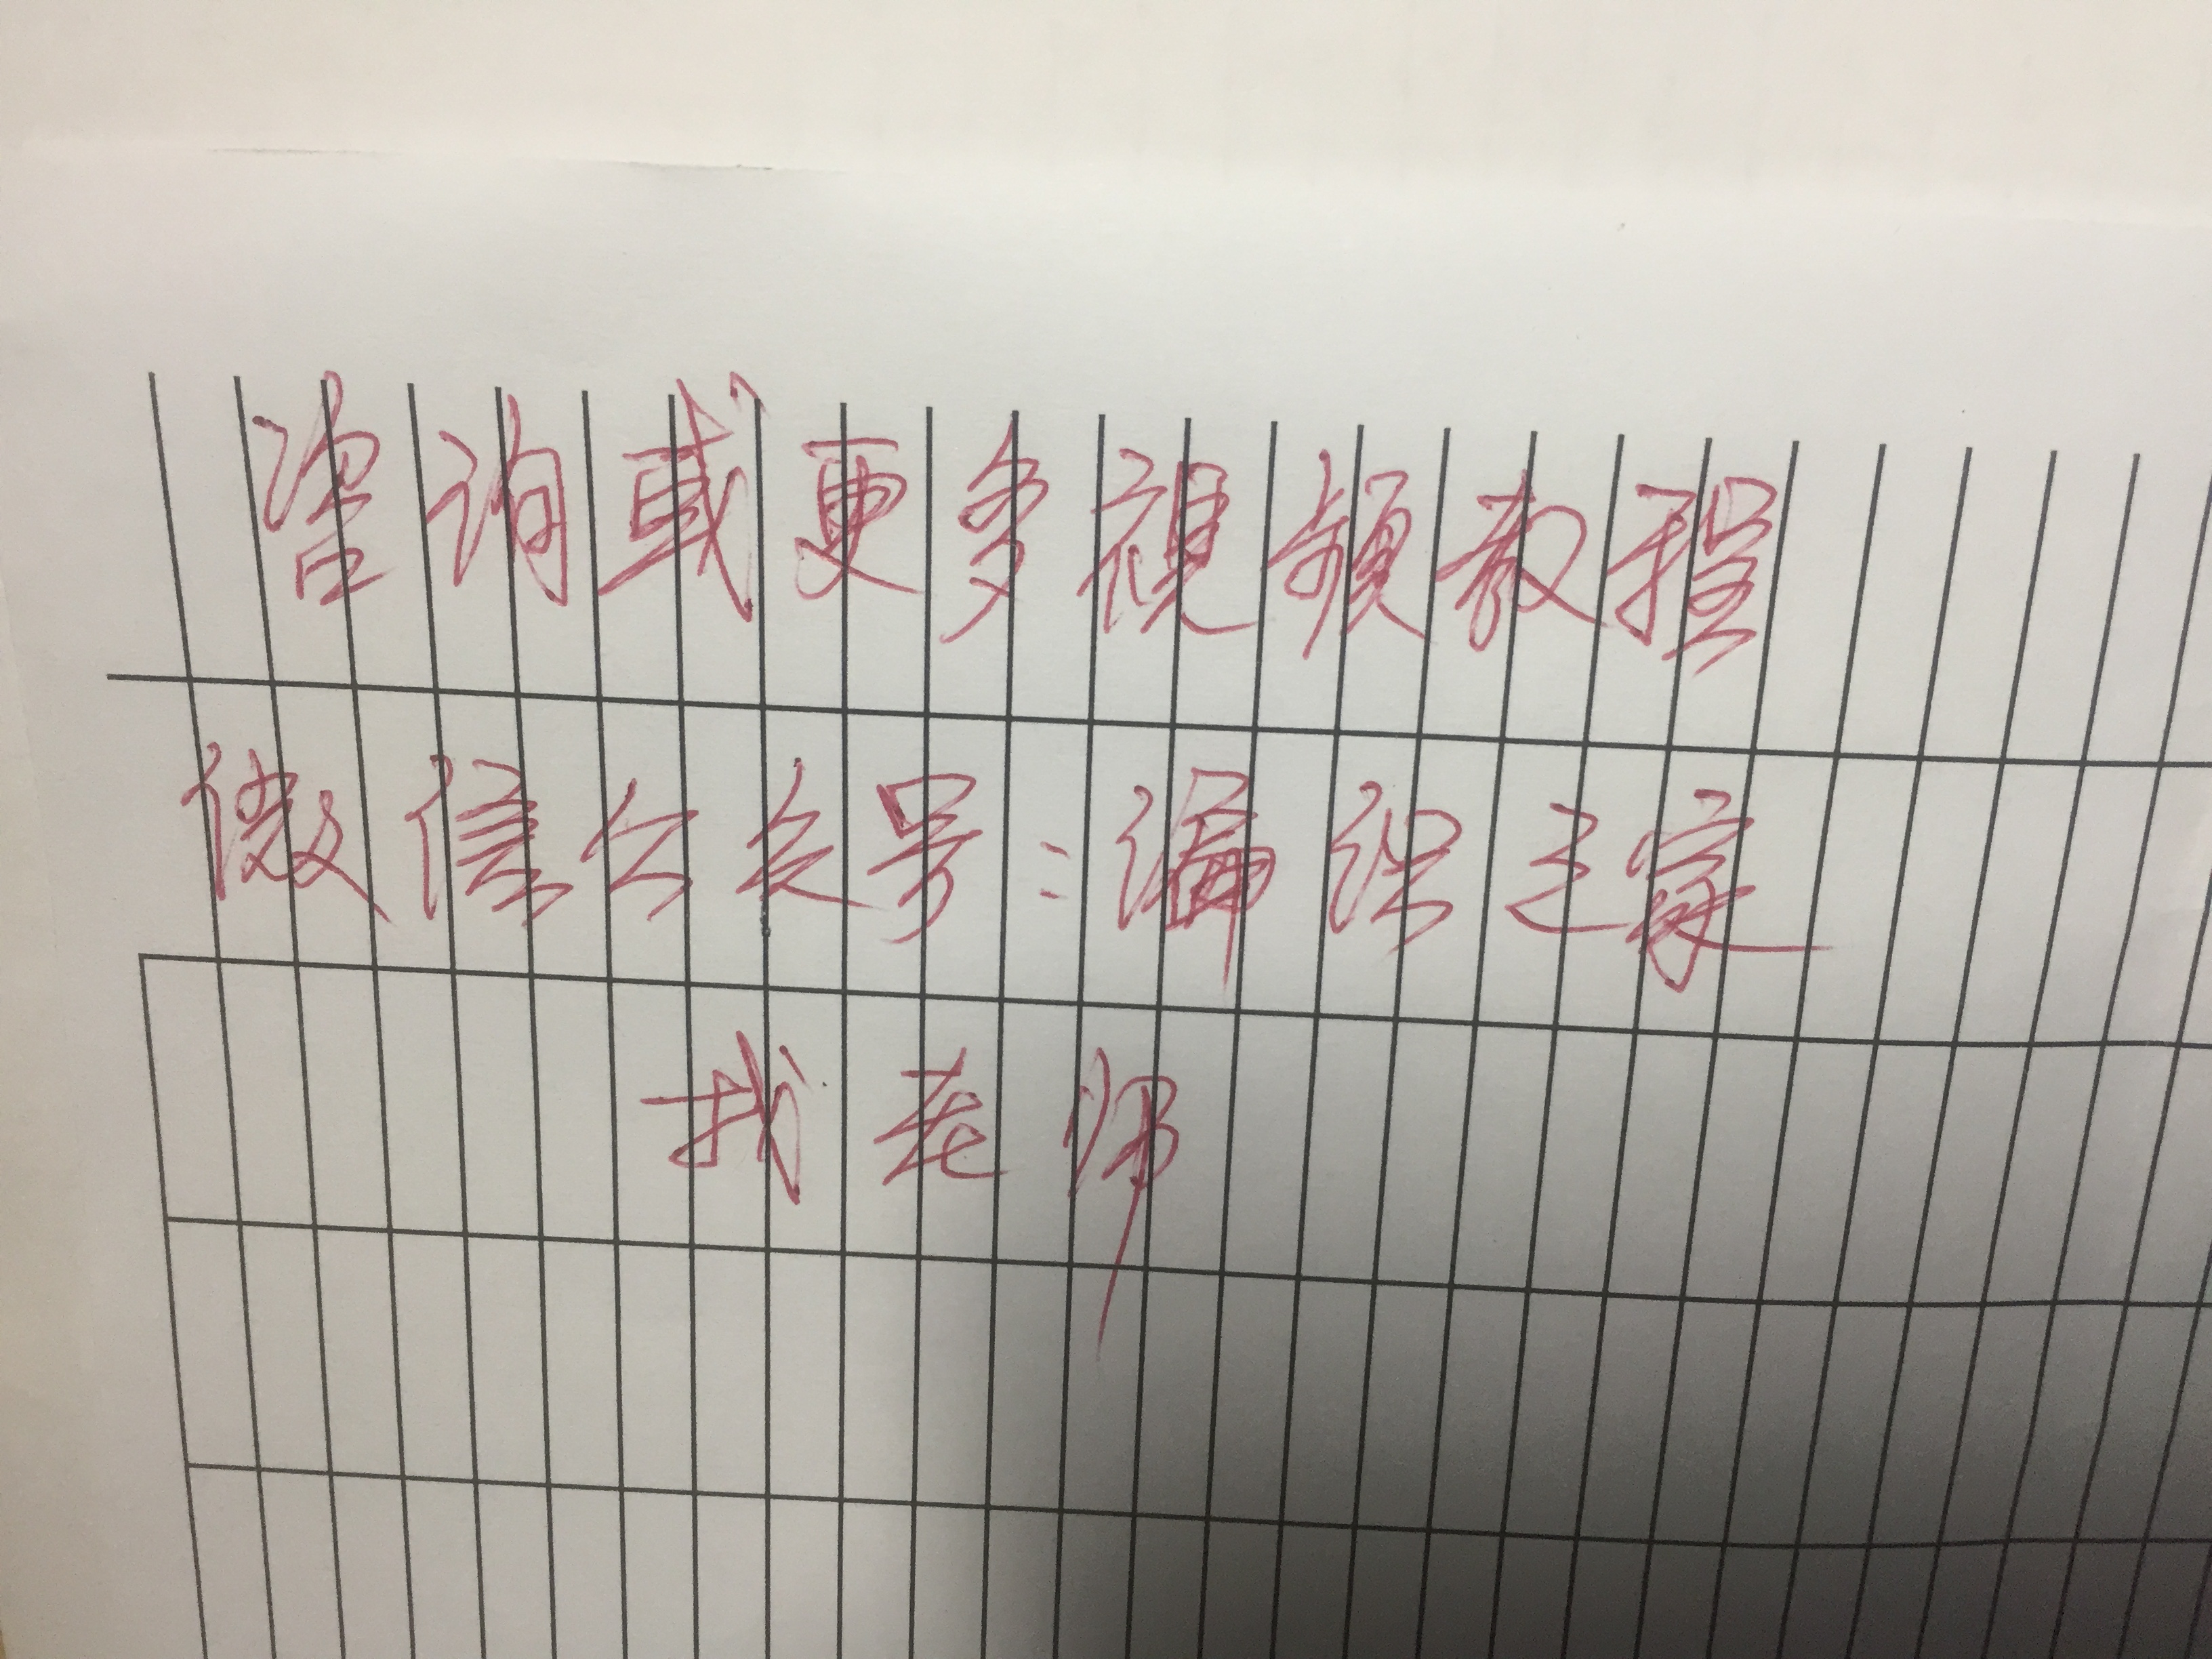 咨询或更多視频教程
微信公众号：编织之家
找老师